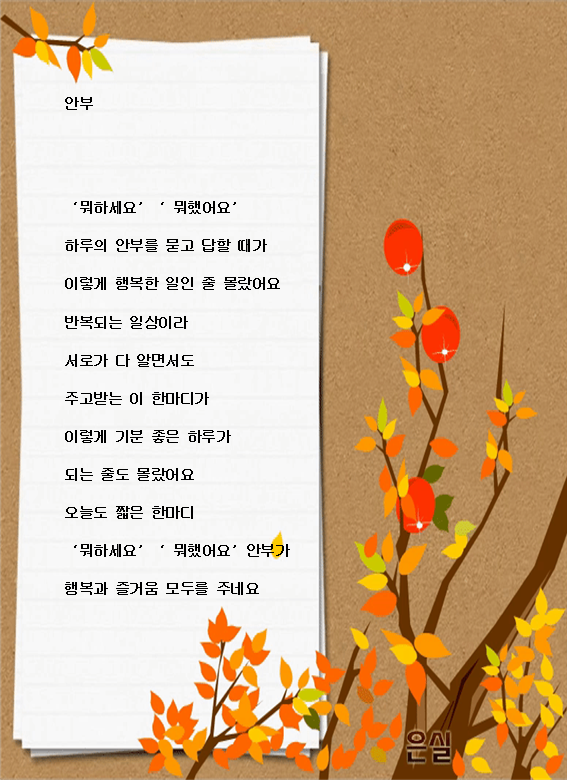 안부
‘뭐하세요’ ‘ 뭐했어요’
하루의 안부를 묻고 답할 때가
이렇게 행복한 일인 줄 몰랐어요
반복되는 일상이라
서로가 다 알면서도
주고받는 이 한마디가
이렇게 기분 좋은 하루가
되는 줄도 몰랐어요
오늘도 짧은 한마디
‘뭐하세요’ ‘ 뭐했어요’ 안부가
행복과 즐거움 모두를 주네요
은실